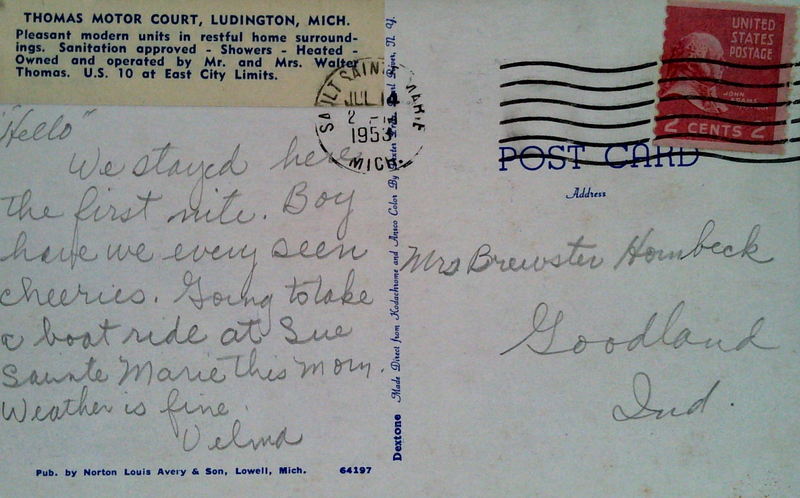 THOMAS MOTOR COURT, LUDINGTON, MICH.
Pleasant modern units in restful home surround-
ings. Sanitation approved - Showers - Heated -
Owned and operated by Mr. and Mrs. Walter
Thomas. U.S. 10 at East City Limits.
"Hello"
We stayed here
the first nite. Boy
have we every seen
cheeries. Going to take
a boat ride at Sue
Sainte Marie this morn.
Weather is fine.
Velma
Pub. by Norton Louis Avery & Son, Lowell, Mich. 64197
Dextone Made Direct from Kodachrome and Ansco Color By Dexter Press, Pearl River, N. Y.
SAULT SAINTE MARIE
JUL
2
1953
MICH.
UNITED
STATES
POSTAGE
JOHN
ADAMS
2 CENTS 2
POST CARD
Address
Mrs Brewster Hornbeck
Goodland
Ind.